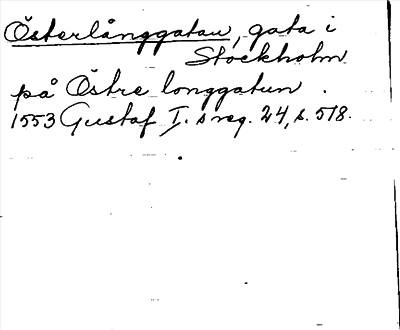 Österlånggatan, gata i
Stockholm
på Östre longgatun .
1553 Gustaf I. s reg. 24, s. 518.